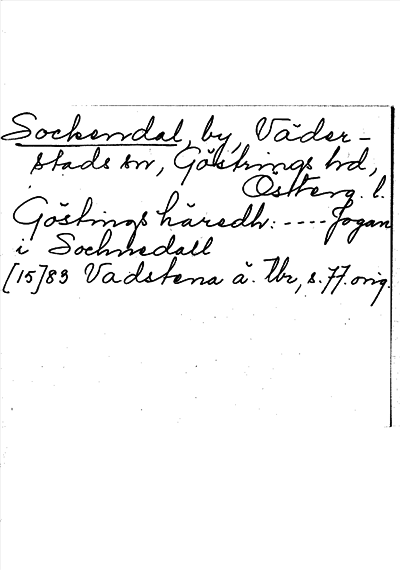 Sockendal, by, Väder-
stads sn, Göstrings hd,
Österg. l.
Göstings häredh: ---- Jogan
i Sochnedall
[15]83 Vadstena ä. Tbr, s. 77. orig.